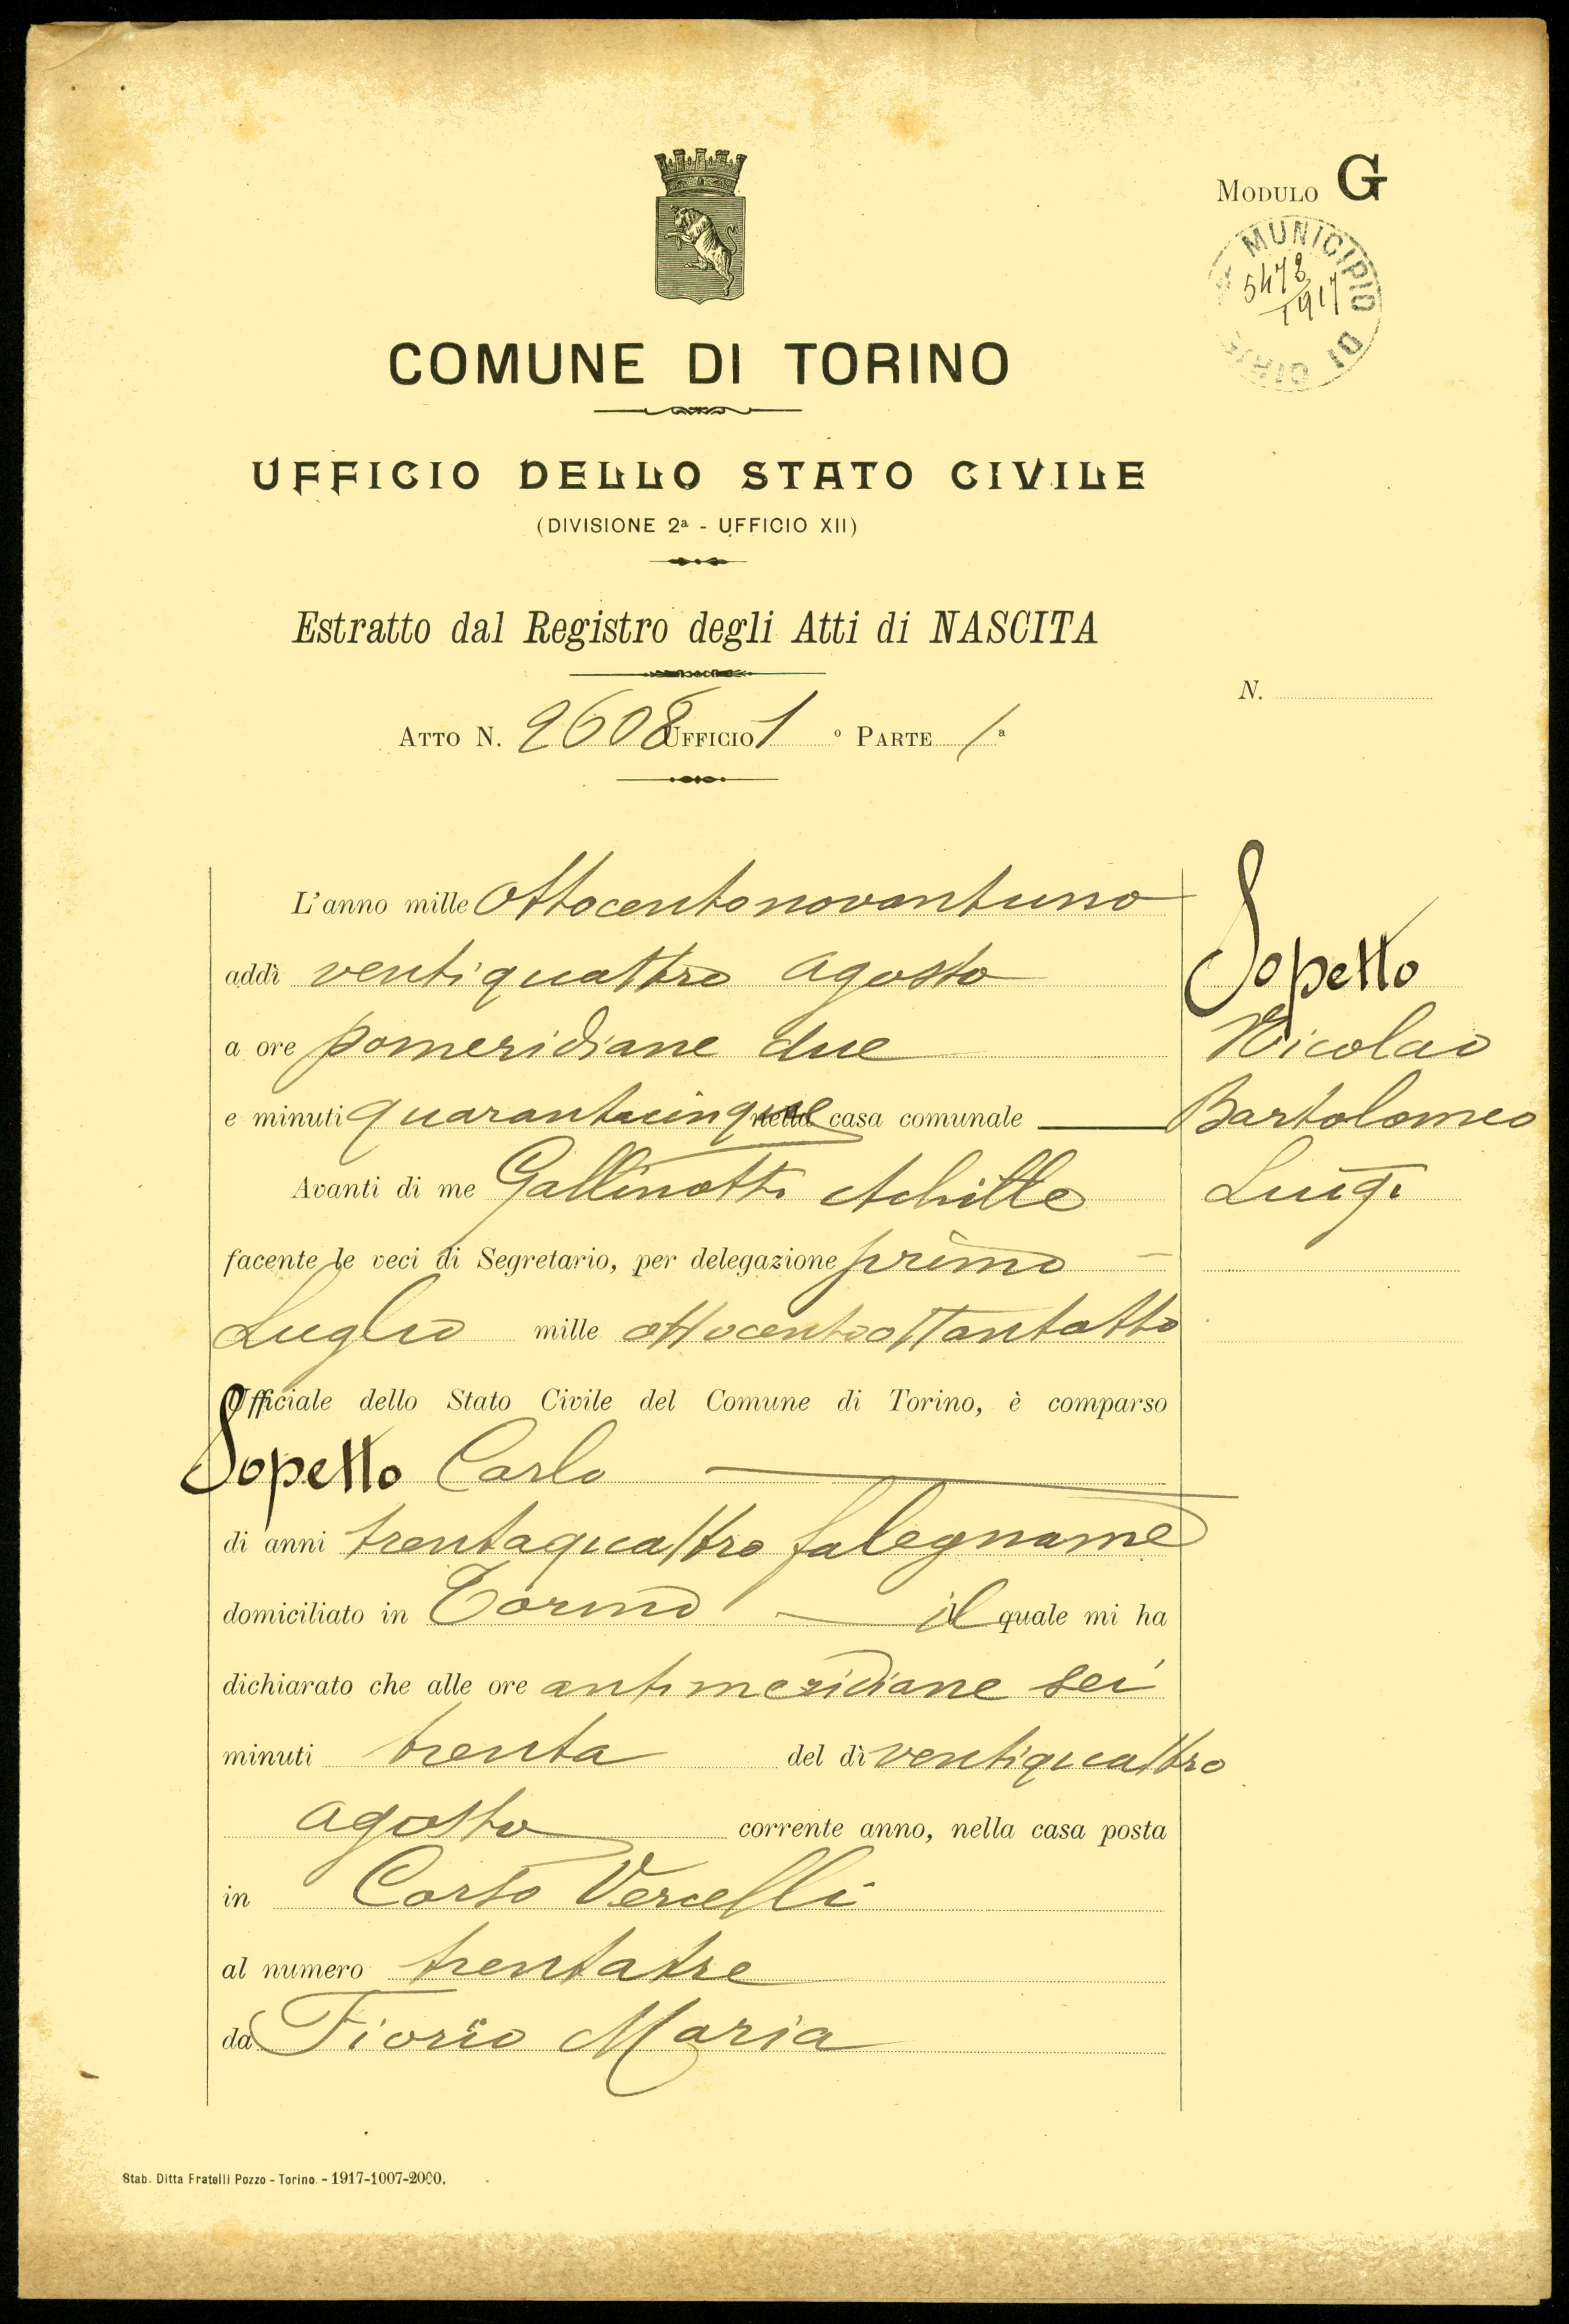 MODULO G
MUNICIPIO DI CIRIÈ
5478
1917
COMUNE DI TORINO
UFFICIO DELLO STATO CIVILE
(DIVISIONE 2ª - UFFICIO XII)
Estratto dal Registro degli Atti di NASCITA
N.
ATTO N. 2608 UFFICIO 1 º PARTE 1 ª
L'anno mille Ottocentonovantuno
addì ventiquattro agosto
a ore pomeridiane due
e minuti quarantacinque nella casa comunale
Avanti di me Gallinotti Achille
facente le veci di Segretario, per delegazione primo
Luglio mille ottocentoottantotto
Ufficiale dello Stato Civile del Comune di Torino, è comparso
Sopetto Carlo
di anni trentaquattro falegname
domiciliato in Torino il quale mi ha
dichiarato che alle ore antimeridiane sei
minuti trenta del dì ventiquattro
agosto corrente anno, nella casa posta
in Corso Vercelli
al numero trentatre
da Fiorio Maria
Sopetto
Nicolao
Bartolomeo
Luigi
Stab. Ditta Fratelli Pozzo - Torino. - 1917-1007-2000.